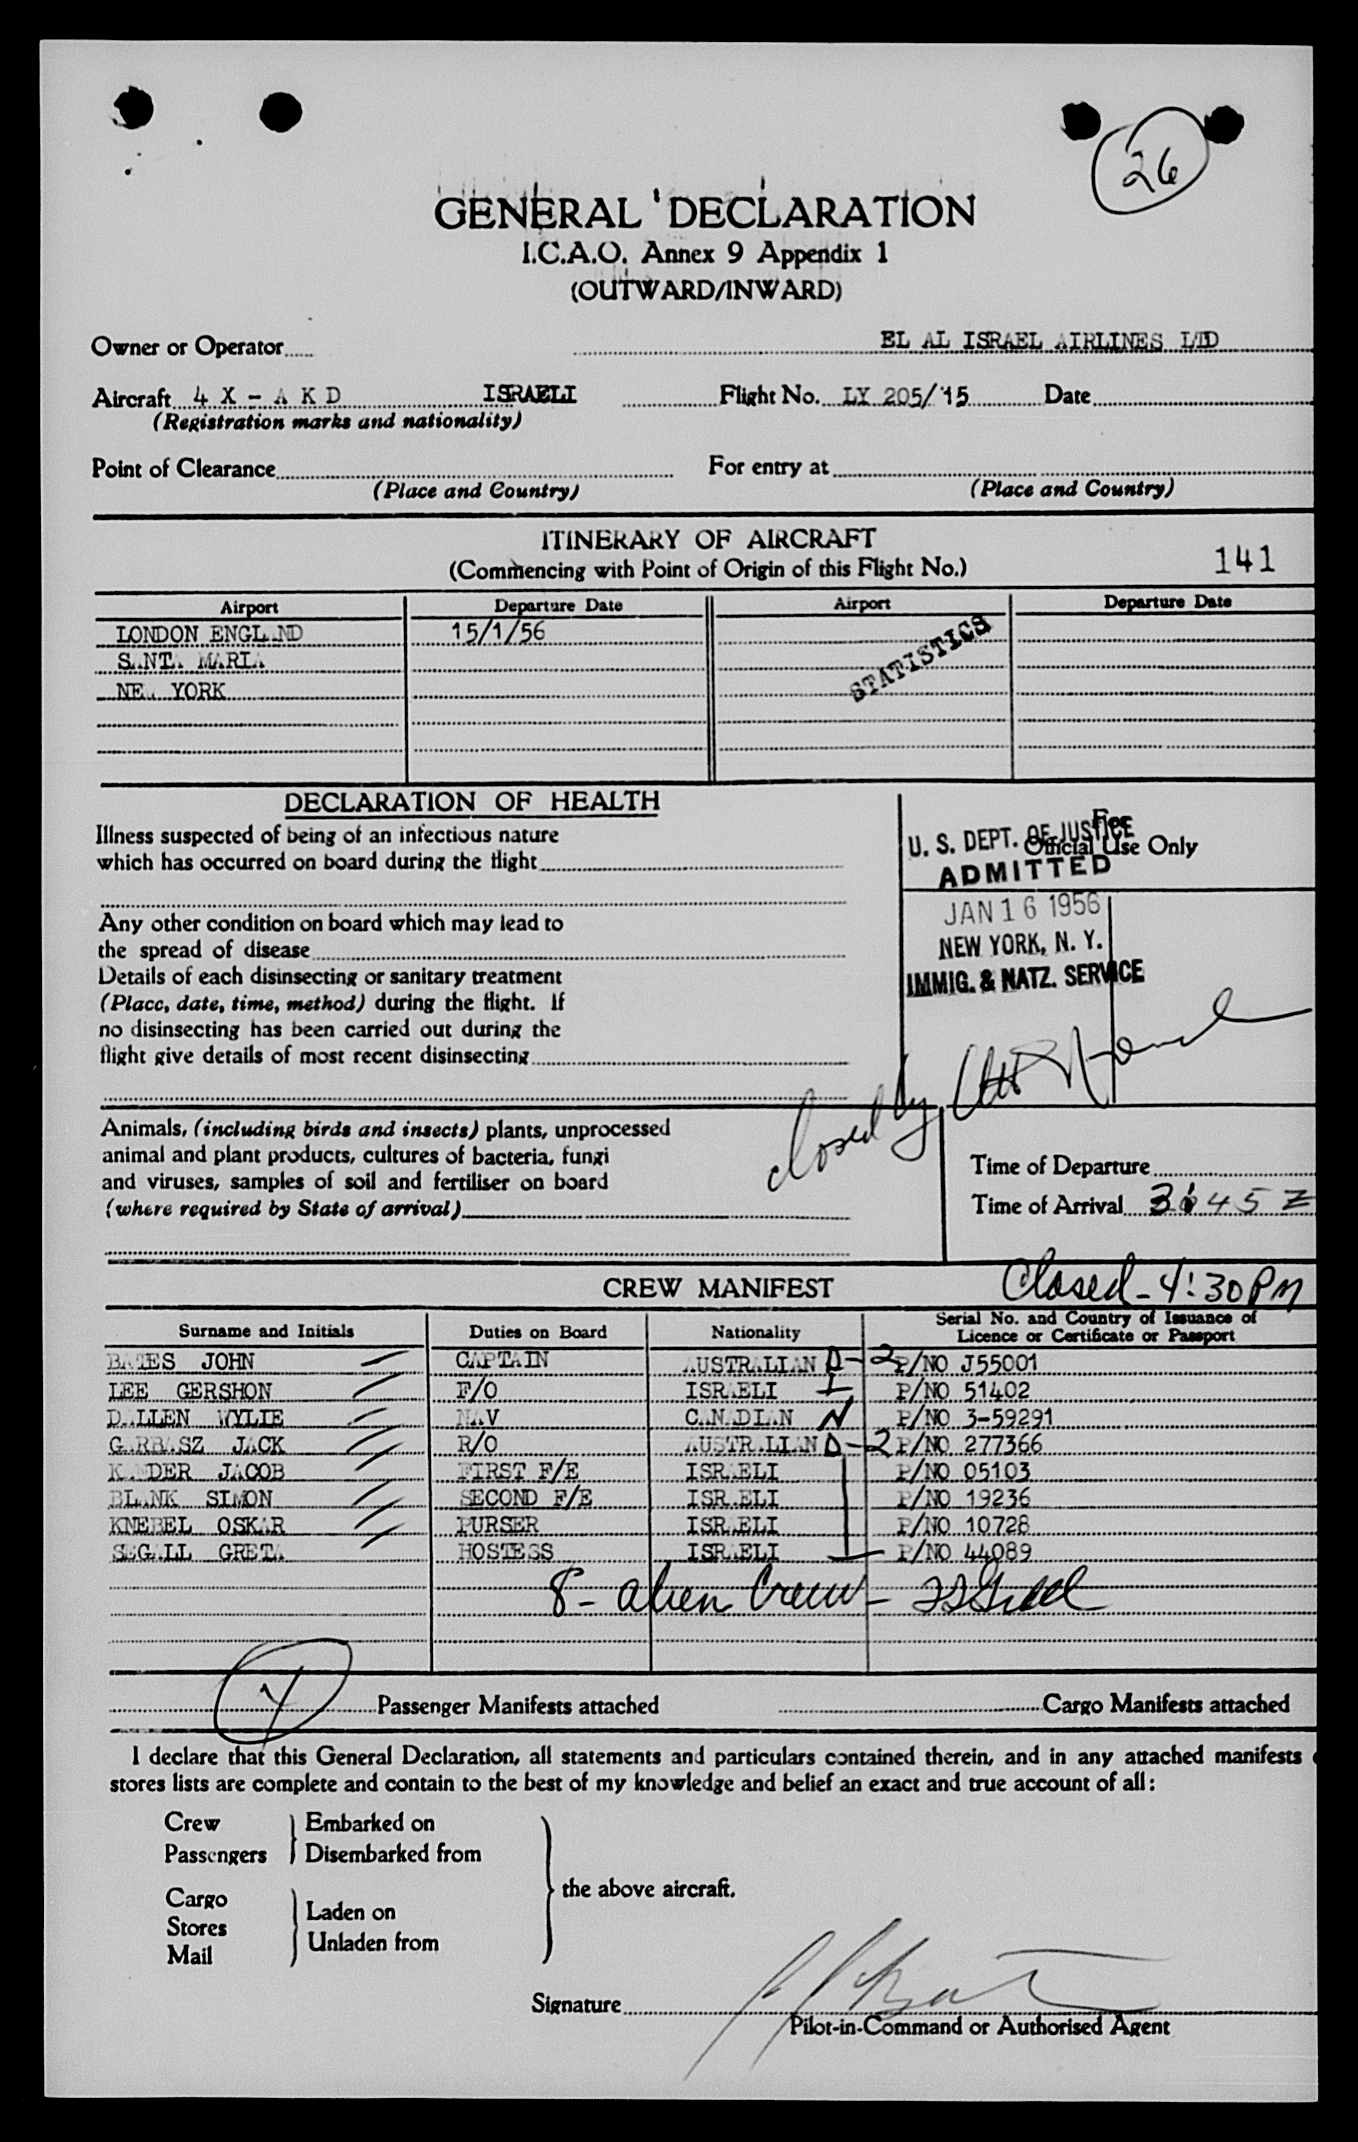 26
GENERAL DECLARATION
I.C.A.O. Annex 9 Appendix 1
(OUTWARD/INWARD)
Owner or Operator EL AL ISRAEL AIRLINES LTD
Aircraft 4 X - A K D ISRAELI Flight No. LY 205/15 Date
(Registration marks and nationality)
Point of Clearance For entry at
(Place and Country) (Place and Country)
ITINERARY OF AIRCRAFT
(Commencing with Point of Origin of this Flight No.) 141
Airport Departure Date Airport Departure Date
LONDON ENGLAND 15/1/56
SANTA MARIA
NEW YORK
STATISTICS
DECLARATION OF HEALTH
Illness suspected of being of an infectious nature
which has occurred on board during the flight
Any other condition on board which may lead to
the spread of disease
Details of each disinsecting or sanitary treatment
(Place, date, time, method) during the flight. If
no disinsecting has been carried out during the
flight give details of most recent disinsecting
For
Official Use Only
U. S. DEPT. OF JUSTICE
ADMITTED
JAN 16 1956
NEW YORK, N. Y.
IMMIG. & NATZ. SERVICE
closed by
Animals, (including birds and insects) plants, unprocessed
animal and plant products, cultures of bacteria, fungi
and viruses, samples of soil and fertiliser on board
(where required by State of arrival)
Time of Departure
Time of Arrival 45 Z
CREW MANIFEST Closed - 4:30 PM
Surname and Initials Duties on Board Nationality Serial No. and Country of Issuance of
Licence or Certificate or Passport
BATES JOHN CAPTAIN AUSTRALIAN D-2 P/NO J55001
LEE GERSHON F/O ISRAELI I P/NO 51402
DALLEN WYLIE NAV CANADIAN N P/NO 3-59291
GARBASZ JACK R/O AUSTRALIAN D-2 P/NO 277366
KANDER JACOB FIRST F/E ISRAELI P/NO 05103
BLANK SIMON SECOND F/E ISRAELI P/NO 19236
KNEBEL OSKAR PURSER ISRAELI P/NO 10728
SEGALL GRETA HOSTESS ISRAELI P/NO 44089
8 - alien Crew -
Passenger Manifests attached Cargo Manifests attached
I declare that this General Declaration, all statements and particulars contained therein, and in any attached manifests
stores lists are complete and contain to the best of my knowledge and belief an exact and true account of all:
Crew Embarked on
Passengers Disembarked from
the above aircraft.
Cargo Laden on
Stores
Unladen from
Mail
Signature
Pilot-in-Command or Authorised Agent